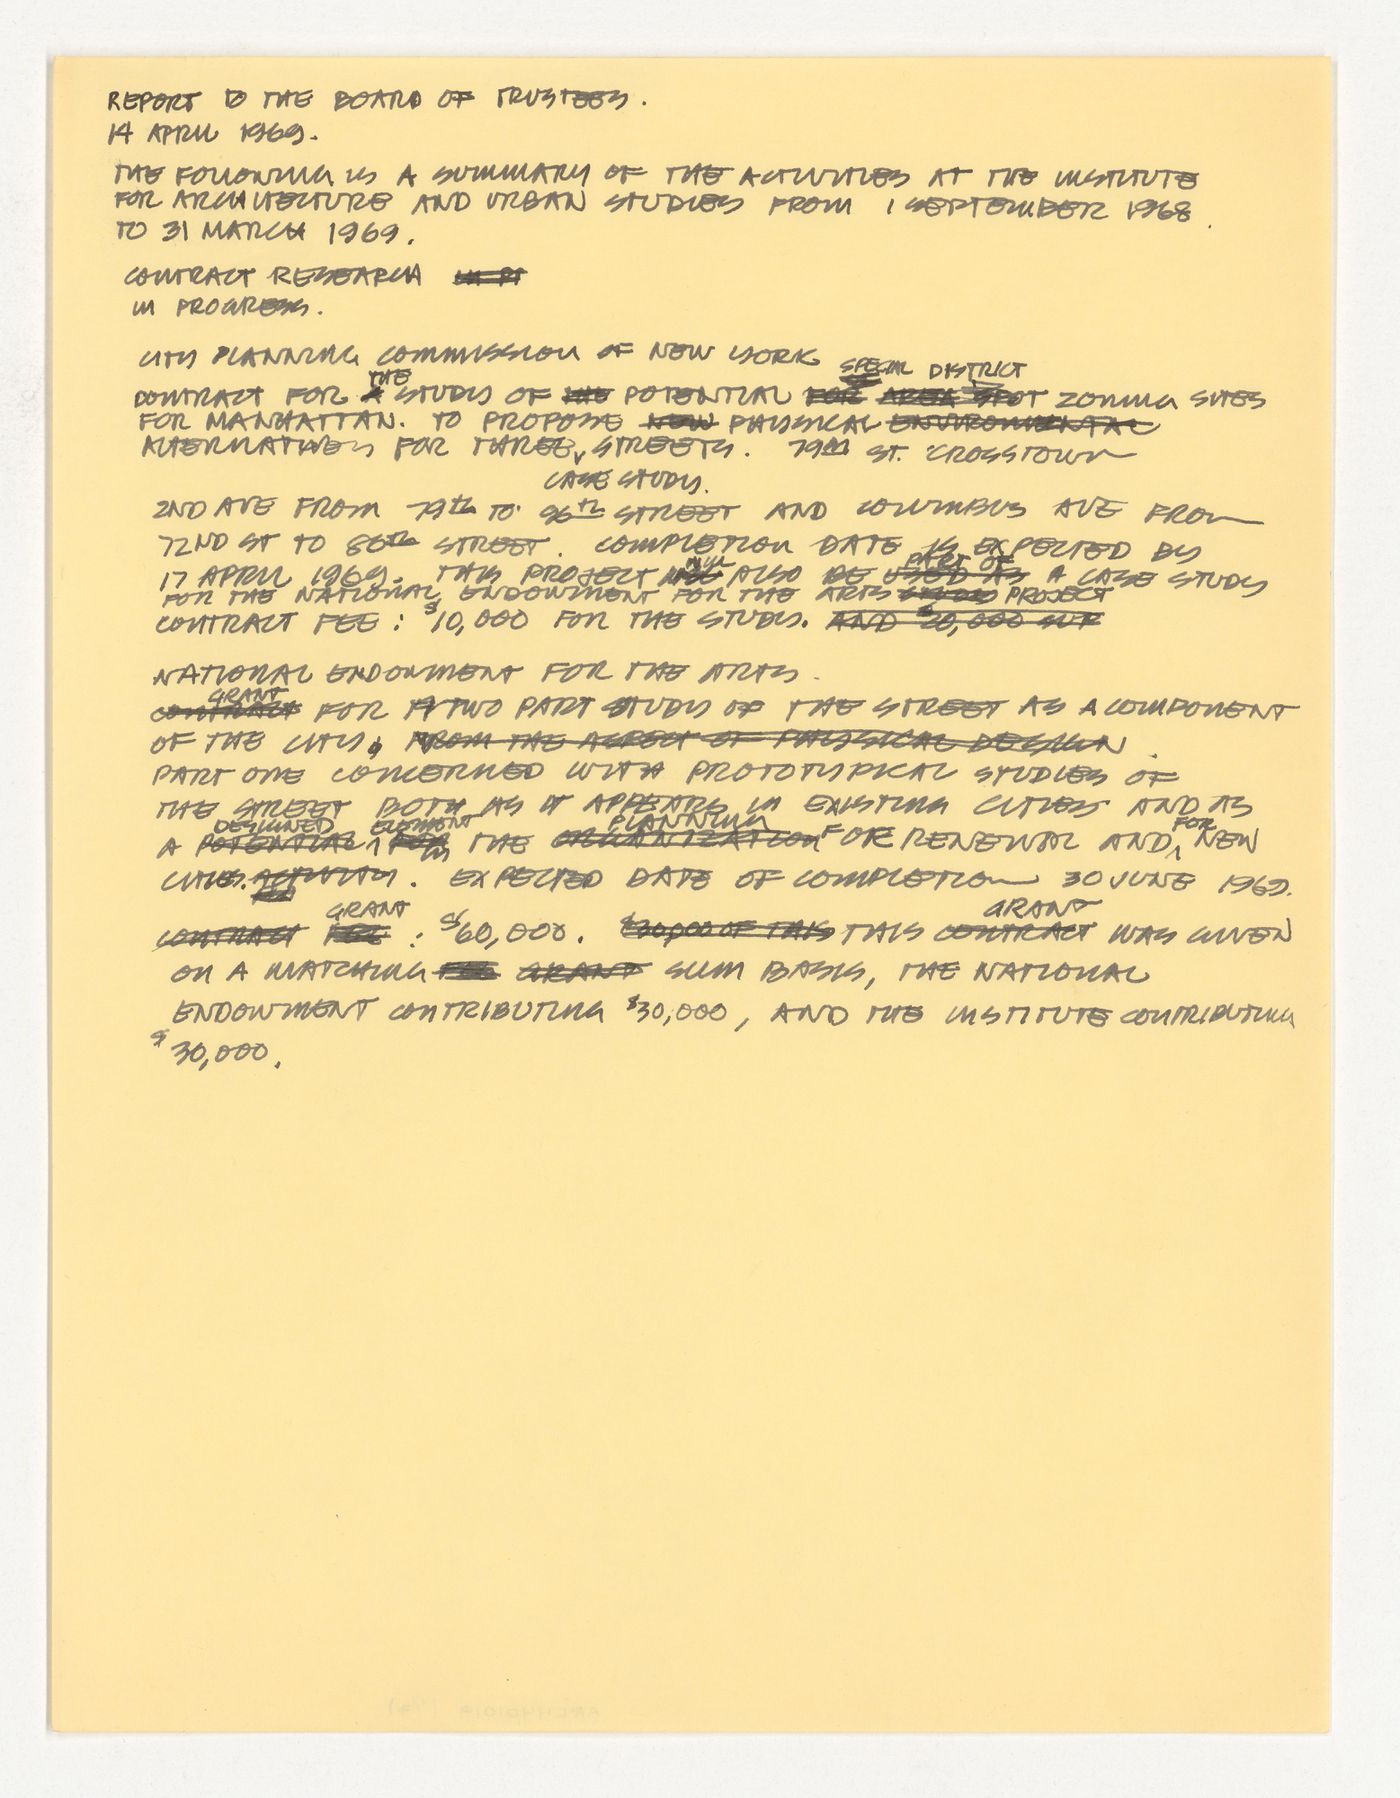 REPORT TO THE BOARD OF TRUSTEES.
14 APRIL 1969.
THE FOLLOWING IS A SUMMARY OF THE ACTIVITIES AT THE INSTITUTE
FOR ARCHITECTURE AND URBAN STUDIES FROM 1 SEPTEMBER 1968
TO 31 MARCH 1969.
CONTRACT RESEARCH IN PR
IN PROGRESS.
CITY PLANNING COMMISSION OF NEW YORK
THE SPECIAL DISTRICT
CONTRACT FOR A STUDY OF THE POTENTIAL FOR AREA SPOT ZONING SITES
FOR MANHATTAN. TO PROPOSE NEW PHYSICAL ENVIRONMENTAL
ALTERNATIVES FOR THREE STREETS. 79TH ST. CROSSTOWN
CASE STUDY.
2ND AVE FROM 79th TO 96th STREET AND COLUMBUS AVE FROM
72ND ST TO 86th STREET. COMPLETION DATE IS EXPECTED BY
WILL PART OF
17 APRIL 1969. THIS PROJECT ALSO BE USED AS A CASE STUDY
FOR THE NATIONAL ENDOWMENT FOR THE ARTS STUDY PROJECT
CONTRACT FEE: $10,000 FOR THE STUDY. AND $20,000 SUP
NATIONAL ENDOWMENT FOR THE ARTS.
GRANT
CONTRACT FOR A TWO PART STUDY OF THE STREET AS A COMPONENT
OF THE CITY. FROM THE ASPECT OF PHYSICAL DESIGN
PART ONE CONCERNED WITH PROTOTYPICAL STUDIES OF
THE STREET BOTH AS IT APPEARS IN EXISTING CITIES AND AS
DESIGNED ELEMENT PLANNING FOR
A POTENTIAL FOR IN THE ORGANIZATION OF OR RENEWAL AND NEW
CITIES. ACTIVITY. EXPECTED DATE OF COMPLETION 30 JUNE 1969.
GRANT GRANT
CONTRACT FEE: $60,000. $30,000 OF THIS THIS CONTRACT WAS GIVEN
ON A MATCHING FEE GRANT SUM BASIS, THE NATIONAL
ENDOWMENT CONTRIBUTING $30,000, AND THE INSTITUTE CONTRIBUTING
$30,000.